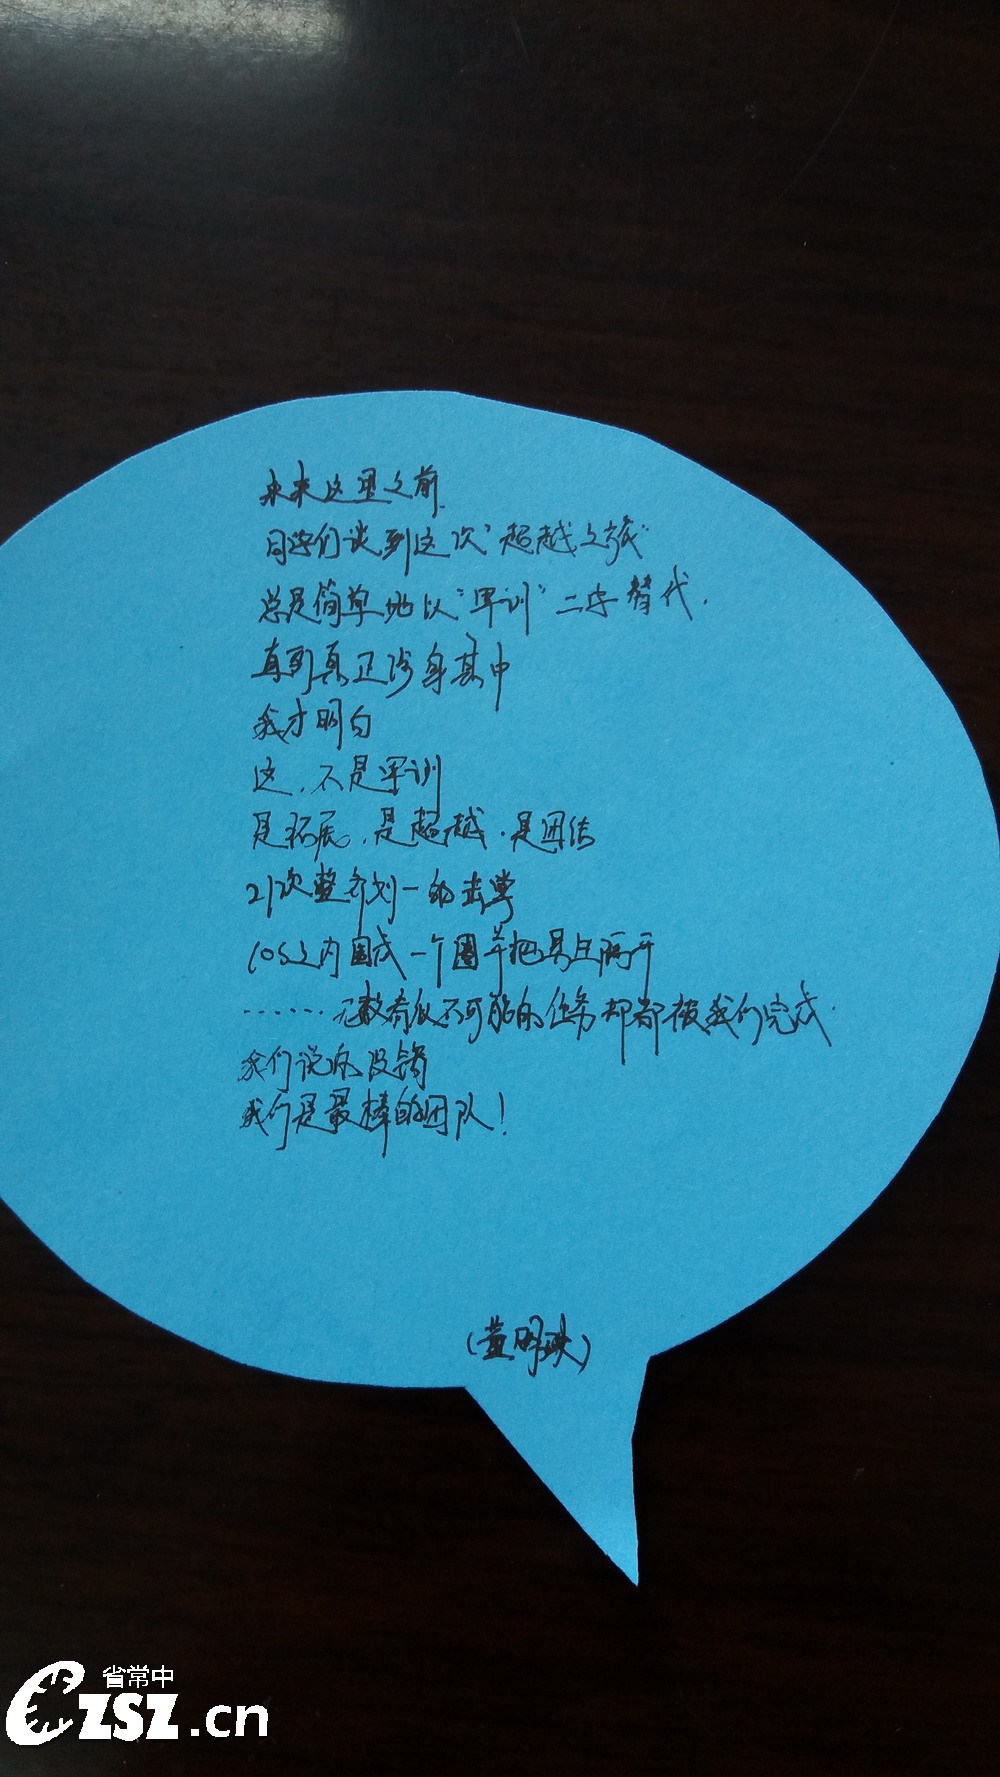 未来这里之前
同学们谈到这次“超越之旅”
总是简单地以“军训”二字替代.
直到真正深身其中
我才明白
这,不是军训
是拓展,是超越,是团结
21次整齐划一的击掌
10s之内围成一个圈并把男生隔开
……无数看似不可能的任务却都被我们完成.
我们说的没错
我们是最棒的团队!
(董明洪)
省常中
CZSZ.cn